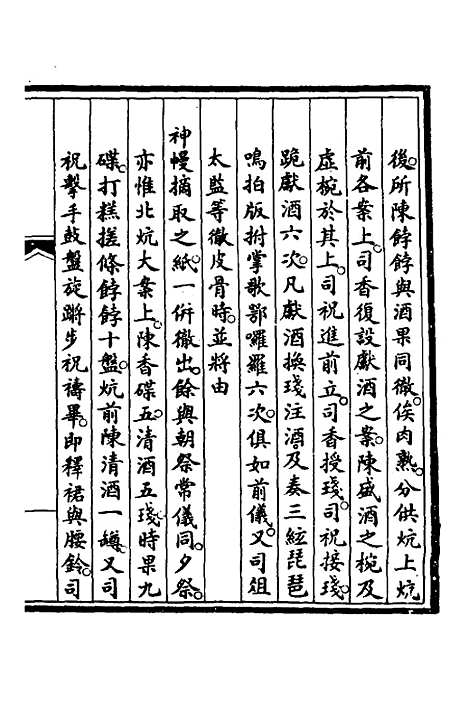 後。所陳餑餑與酒果同徹。俟肉熟。分供炕上炕
前各案上。司香復設獻酒之案。陳盛酒之椀及
虛椀於其上。司祝進前立。司香授琖。司祝接琖。
跪獻酒六次。凡獻酒換琖注酒。及奏三絃琵琶
鳴拍版拊掌歌鄂囉羅六次。俱如前儀。又司俎
太監等徹皮骨時。並將由
神幔摘取之紙。一併徹出。餘與朝祭常儀同。夕祭。
亦惟北炕大案上。陳香碟五。清酒五琖。時果九
碟。打糕搓條餑餑十盤。炕前陳清酒一罇。又司
祝擊手鼓盤旋蹡步祝禱畢。即釋裙與腰鈴。司